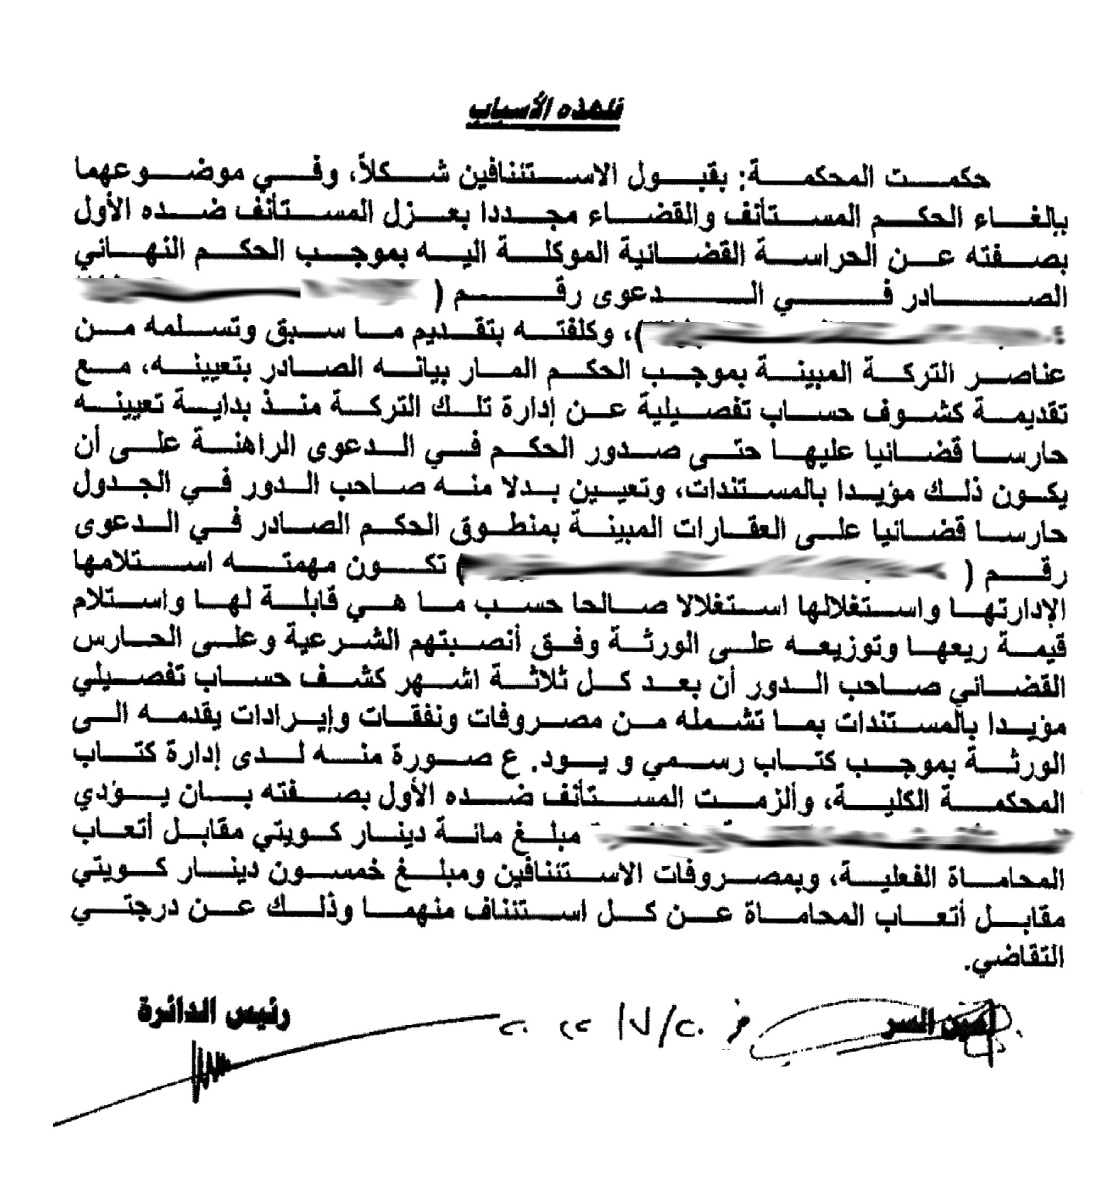 فلهذه الأسباب
حكمت المحكمة: بقبول الاستئنافين شكلاً، وفي موضوعهما
بإلغاء الحكم المستأنف والقضاء مجددا بعزل المستأنف ضده الأول
بصفته عن الحراسة القضائية الموكلة اليه بموجب الحكم النهائي
الصادر في الدعوى رقم (
)، وكلفته بتقديم ما سبق وتسلمه من
عناصر التركة المبينة بموجب الحكم المار بيانه الصادر بتعيينه، مع
تقديمة كشوف حساب تفصيلية عن إدارة تلك التركة منذ بداية تعيينه
حارسا قضائيا عليها حتى صدور الحكم في الدعوى الراهنة على أن
يكون ذلك مؤيدا بالمستندات، وتعيين بدلا منه صاحب الدور في الجدول
حارسا قضائيا على العقارات المبينة بمنطوق الحكم الصادر في الدعوى
رقم ( ) تكون مهمته استلامها
لإدارتها واستغلالها استغلالا صالحا حسب ما هي قابلة لها واستلام
قيمة ريعها وتوزيعه على الورثة وفق أنصبتهم الشرعية وعلى الحارس
القضائي صاحب الدور أن بعد كل ثلاثة اشهر كشف حساب تفصيلي
مؤيدا بالمستندات بما تشمله من مصروفات ونفقات وإيرادات يقدمه الى
الورثة بموجب كتاب رسمي و يود. ع صورة منه لدى إدارة كتاب
المحكمة الكلية، وألزمت المستأنف ضده الأول بصفته بان يؤدي
مبلغ مائة دينار كويتي مقابل أتعاب
المحاماة الفعلية، وبمصروفات الاستئنافين ومبلغ خمسون دينار كويتي
مقابل أتعاب المحاماة عن كل استئناف منهما وذلك عن درجتي
التقاضي.
أمين السر رئيس الدائرة